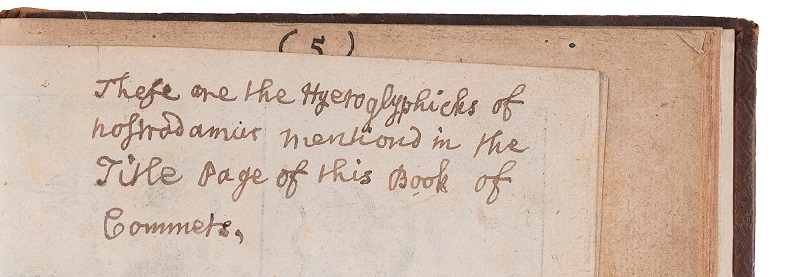 (5)
These are the Hyeroglyphicks of
nostradamus mentiond in the
Title Page of this Book of
Commets,